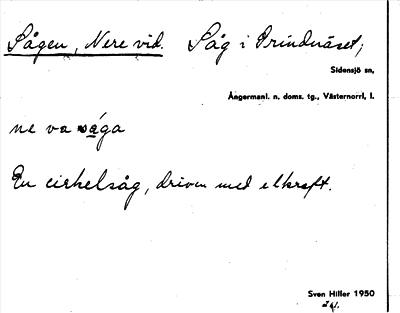 Sågen, Nere vid. Såg i Grindnäset,
Sidensjö sn,
Ångermanl. n. doms. tg., Västernorrl, l.
ne va såga
En cirkelsåg, driven med elkraft.
Sven Hiller 1950